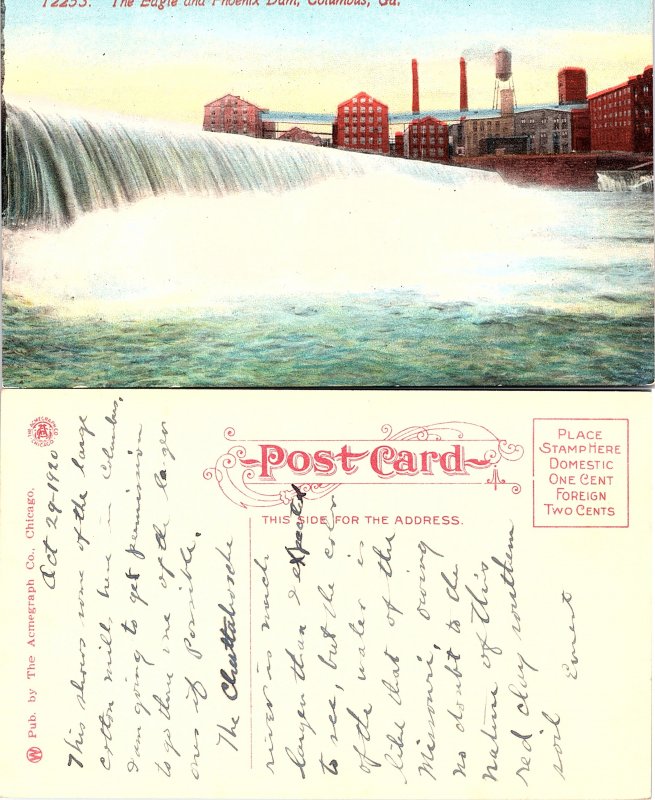 12253. The Eagle and Phoenix Dam, Columbus, Ga.
THE ACMEGRAPH CO.
CHICAGO
Pub. by The Acmegraph Co., Chicago.
Post Card
THIS SIDE FOR THE ADDRESS.
PLACE
STAMP HERE
DOMESTIC
ONE CENT
FOREIGN
TWO CENTS
Oct 29-1920
This shows some of the large
cotton mills here in Clumbus,
I am going to get permission
to go thru one of the larger
ones if Possible.
The Chattahooche
river is much
larger than I expected
to see, but the color
of the water is
like that of the
Missouri, owing
no doubt to the
nature of this
red clay southern
soil
Ernest